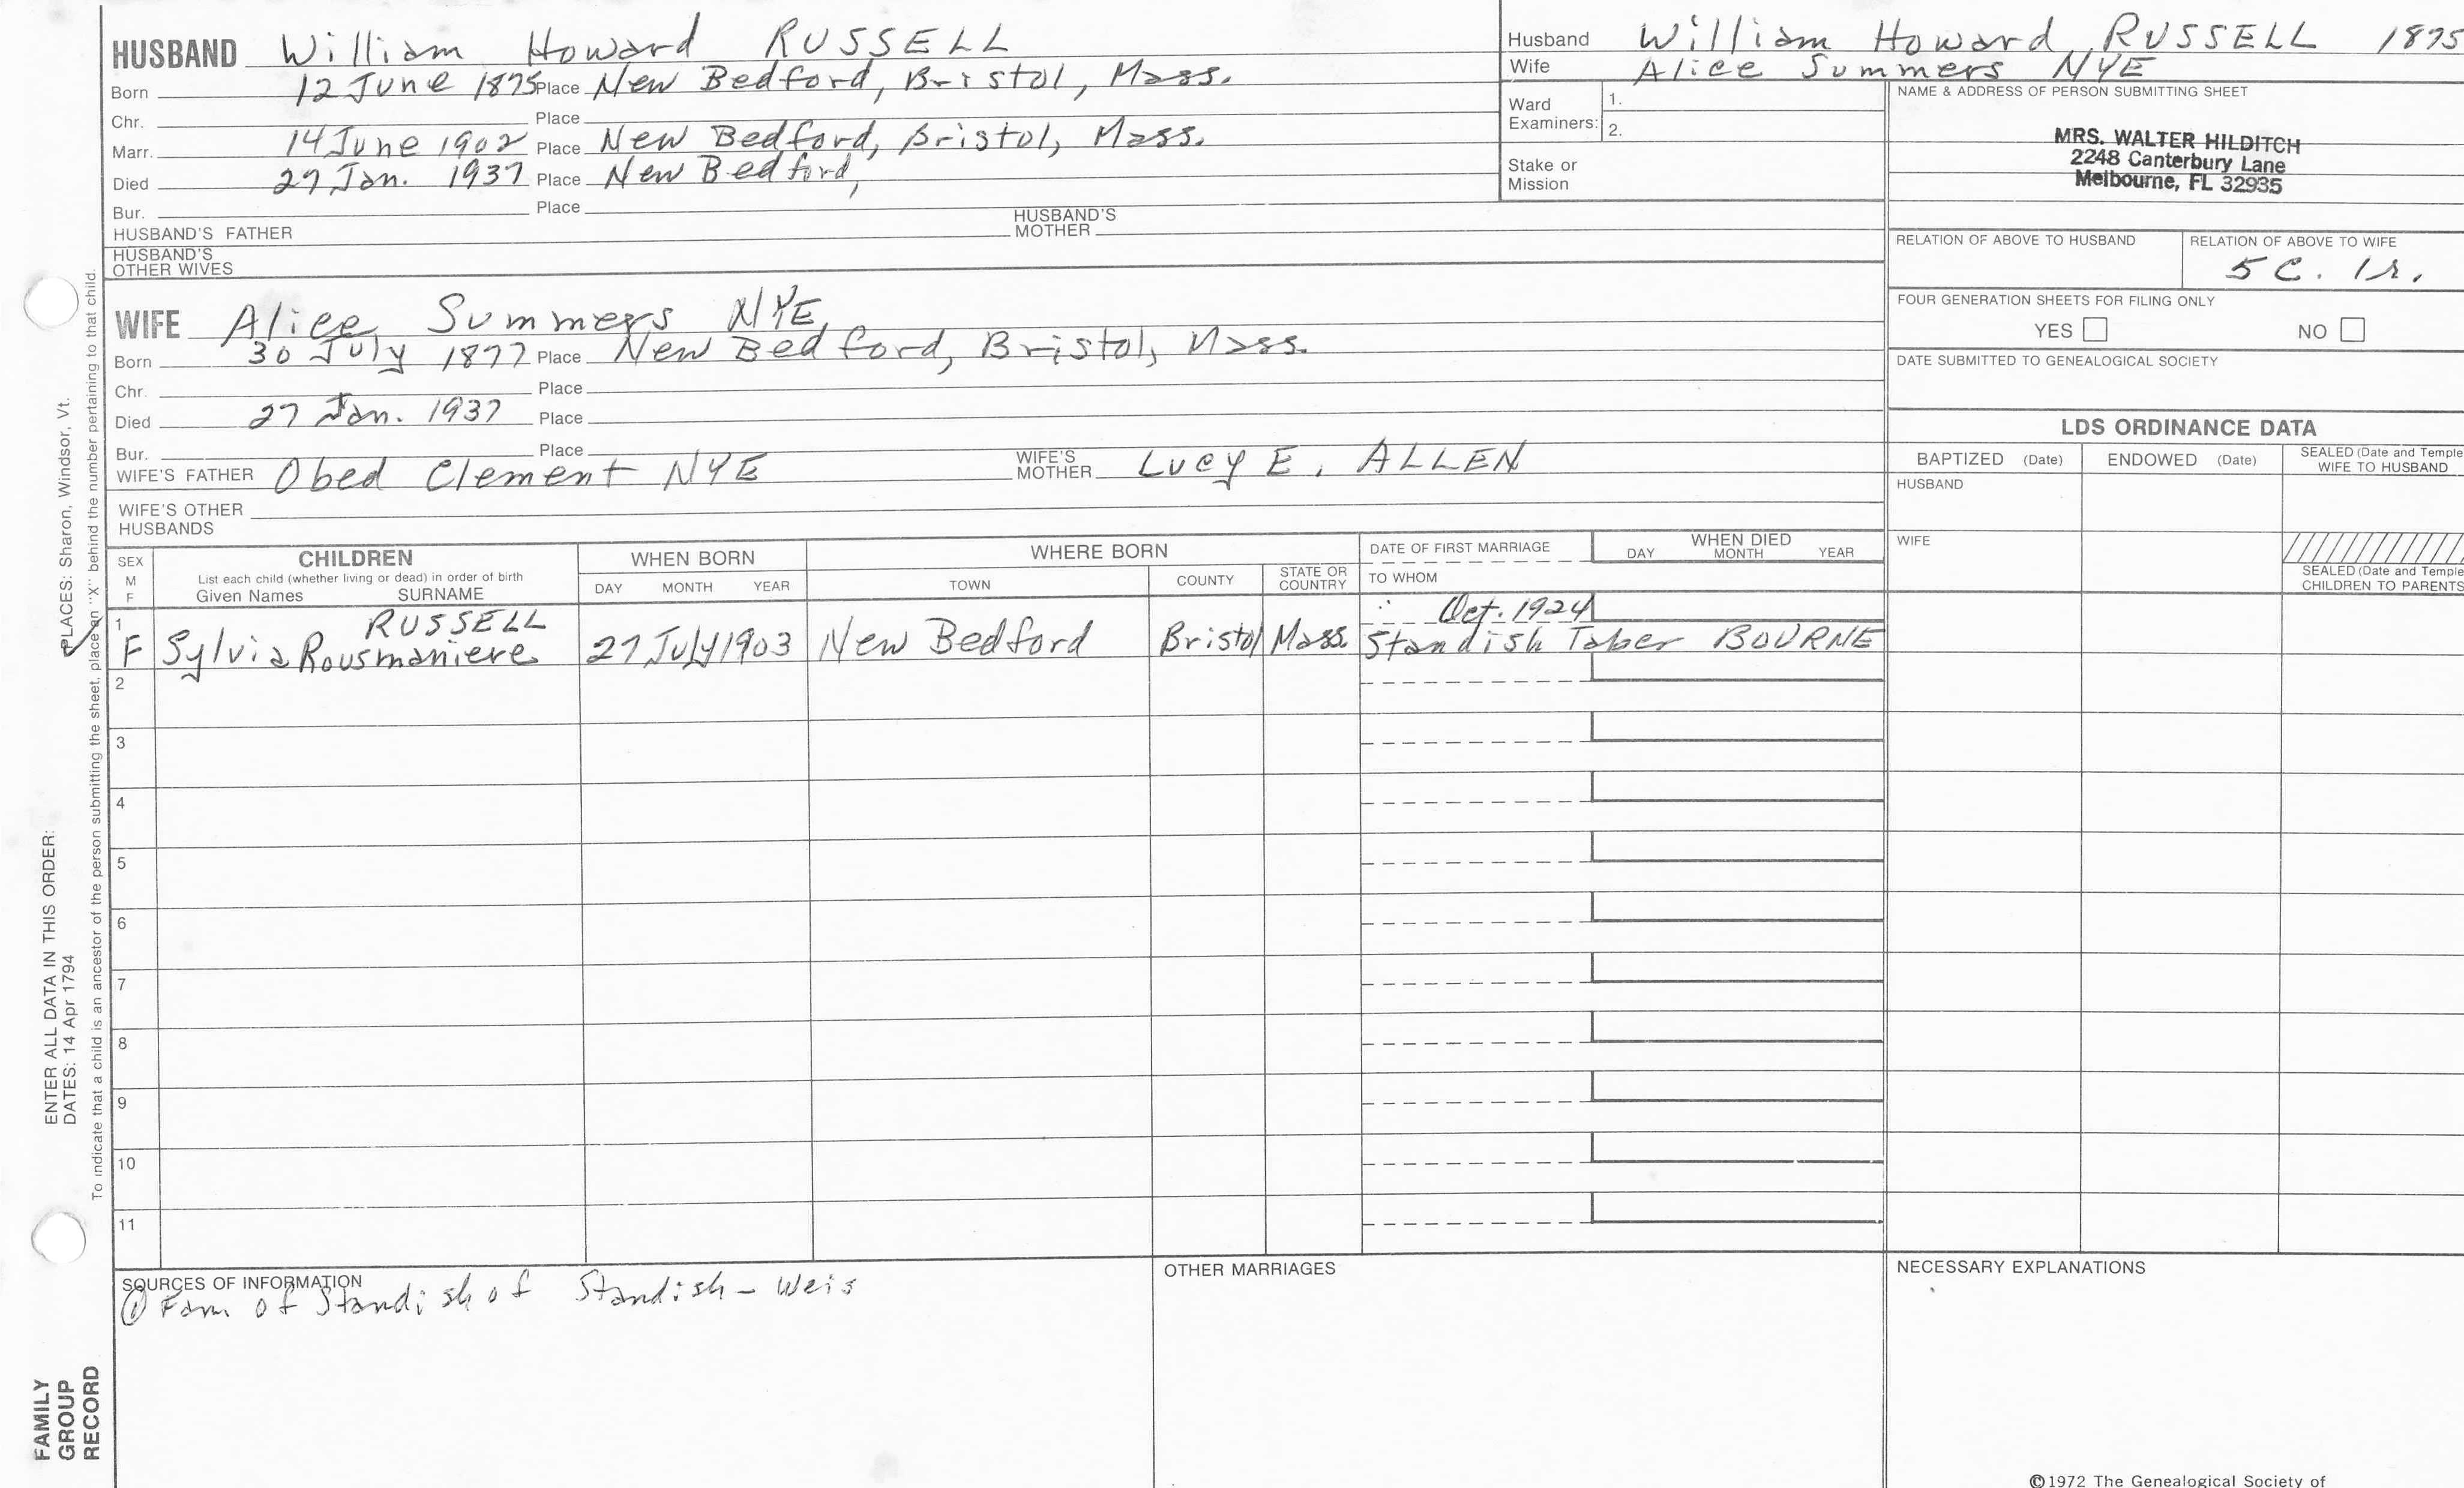 HUSBAND William Howard RUSSELL
Born 12 June 1875 Place New Bedford, Bristol, Mass.
Chr. Place
Marr. 14 June 1902 Place New Bedford, Bristol, Mass.
Died 27 Jan. 1937 Place New Bedford,
Bur. Place
HUSBAND'S FATHER HUSBAND'S MOTHER
HUSBAND'S OTHER WIVES
Husband William Howard RUSSELL 1875
Wife Alice Summers NYE
Ward Examiners: 1.
2.
Stake or Mission
NAME & ADDRESS OF PERSON SUBMITTING SHEET
MRS. WALTER HILDITCH
2248 Canterbury Lane
Melbourne, FL 32935
RELATION OF ABOVE TO HUSBAND RELATION OF ABOVE TO WIFE
5 C. 1 r.
FOUR GENERATION SHEETS FOR FILING ONLY
YES NO
DATE SUBMITTED TO GENEALOGICAL SOCIETY
WIFE Alice Summers NYE
Born 30 July 1877 Place New Bedford, Bristol, Mass.
Chr. Place
Died 27 Jan. 1937 Place
Bur. Place
WIFE'S FATHER Obed Clement NYE WIFE'S MOTHER Lucy E. ALLEN
WIFE'S OTHER HUSBANDS
LDS ORDINANCE DATA
BAPTIZED (Date) ENDOWED (Date) SEALED (Date and Temple
WIFE TO HUSBAND
HUSBAND
WIFE
SEALED (Date and Temple
CHILDREN TO PARENTS
SEX M F
CHILDREN
List each child (whether living or dead) in order of birth
Given Names SURNAME
WHEN BORN
DAY MONTH YEAR
WHERE BORN
TOWN COUNTY STATE OR COUNTRY
DATE OF FIRST MARRIAGE
TO WHOM
WHEN DIED
DAY MONTH YEAR
1 RUSSELL Oct. 1924
F Sylvia Rousmaniere 27 July 1903 New Bedford Bristol Mass. Standish Taber BOURNE
2
3
4
5
6
7
8
9
10
11
SOURCES OF INFORMATION
① Fam of Standish of Standish - Weis
OTHER MARRIAGES
NECESSARY EXPLANATIONS
©1972 The Genealogical Society of
FAMILY GROUP RECORD
ENTER ALL DATA IN THIS ORDER:
DATES: 14 Apr 1794
PLACES: Sharon, Windsor, Vt.
To indicate that a child is an ancestor of the person submitting the sheet, place an "X" behind the number pertaining to that child.